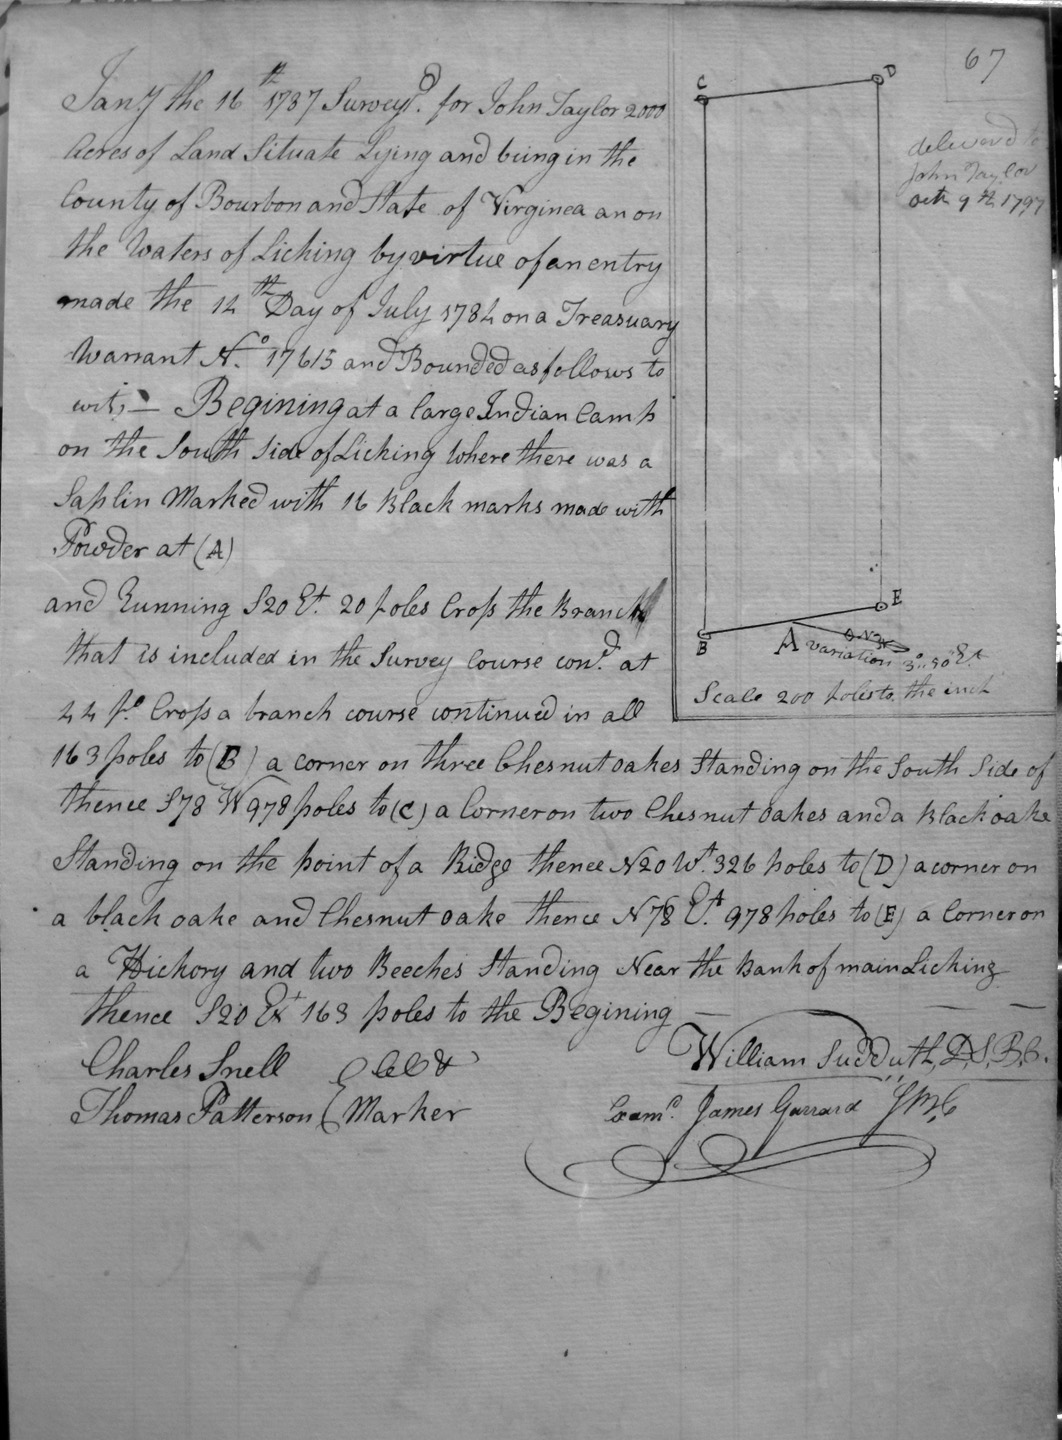 67
Jany the 16th 1787 Surveyd. for John Taylor 2000
Acres of Land Situate Lying and being in the
County of Bourbon and State of Virginea an on
the Waters of Licking by virtue of an entry
made the 14th Day of July 1784 on a Treasuary
Warrant No. 17615 and Bounded as follows to
wit, — Begining at a large Indian Camp
on the South Side of Licking Where there was a
Saplin Marked with 16 Black marks made with
Powder at (A)
and Running S20 Et. 20 poles Cross the Branch
that is included in the Survey Course cond. at
44 po. Cross a branch course continued in all
163 poles to (B) a corner on three Chesnut oakes Standing on the South Side of
thence S78 W 978 poles to (C) a Corner on two Chesnut oakes and a Black oake
Standing on the point of a Ridge thence N20 Wt. 326 poles to (D) a corner on
a black oake and Chesnut oake thence N78 Et. 978 poles to (E) a Corner on
a Hickory and two Beeches Standing Near the Bank of main Licking
thence S20 Et 163 poles to the Begining —
William Sudduth, D.S.B.C.
Charles Snell
Thomas Patterson Marker
Examd. James Garrard SBC
C
D
delivered to
John Taylor
octr 9th 1797
E
B
A variation 3°..50" Et.
Scale 200 poles to the inch